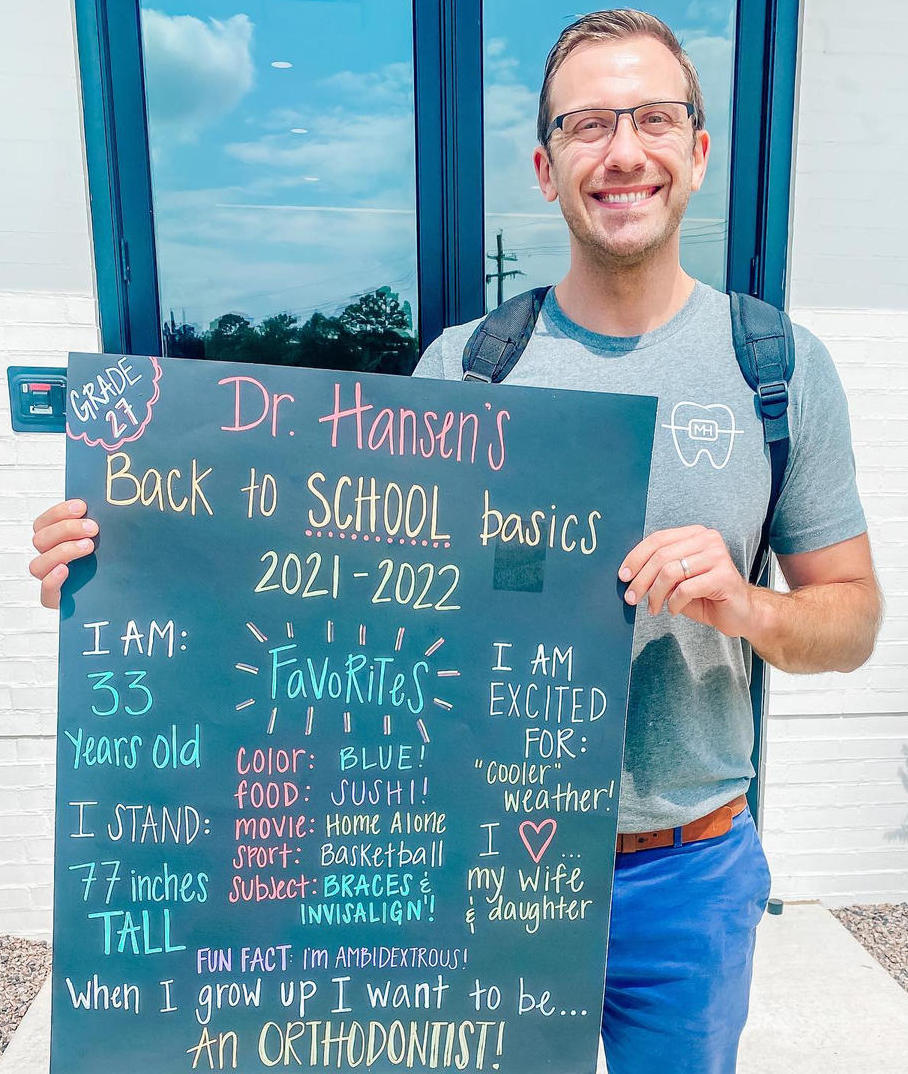 GRADE
27
Dr. Hansen's
Back to SCHOOL basics
2021-2022
I AM:
33
years old
I STAND:
77 inches
TALL
FAVORITES
color: BLUE!
food: SUSHI!
movie: Home Alone
sport: Basketball
subject: BRACES &
INVISALIGN'!
I AM
EXCITED
FOR:
"cooler"
weather!
I ♡...
my wife
& daughter
FUN FACT: I'm AMBIDEXTROUS!
When I grow up I want to be...
An ORTHODONTIST!
MH